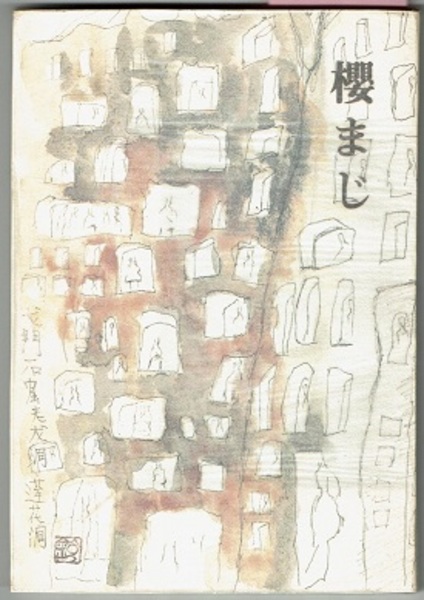 櫻まじ
龍門石窟老龙洞 蓮花洞